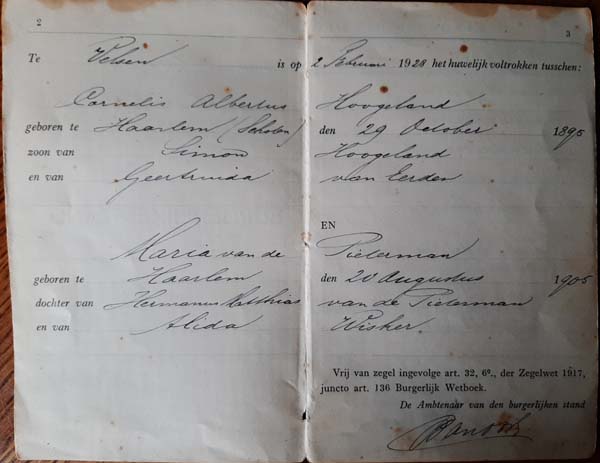 2
3
Te Velsen is op 2 Februari 1928 het huwelijk voltrokken tusschen:
Cornelis Albertus Hoogeland
geboren te Haarlem (Schoten) den 29 October 1895
zoon van Simon Hoogeland
en van Geertruida van Eerden
EN
Maria van de Pieterman
geboren te Haarlem den 20 Augustus 1905
dochter van Hermanus Matthias van de Pieterman
en van Alida Wisker.
Vrij van zegel ingevolge art. 32, 6º., der Zegelwet 1917,
juncto art. 136 Burgerlijk Wetboek.
De Ambtenaar van den burgerlijken stand